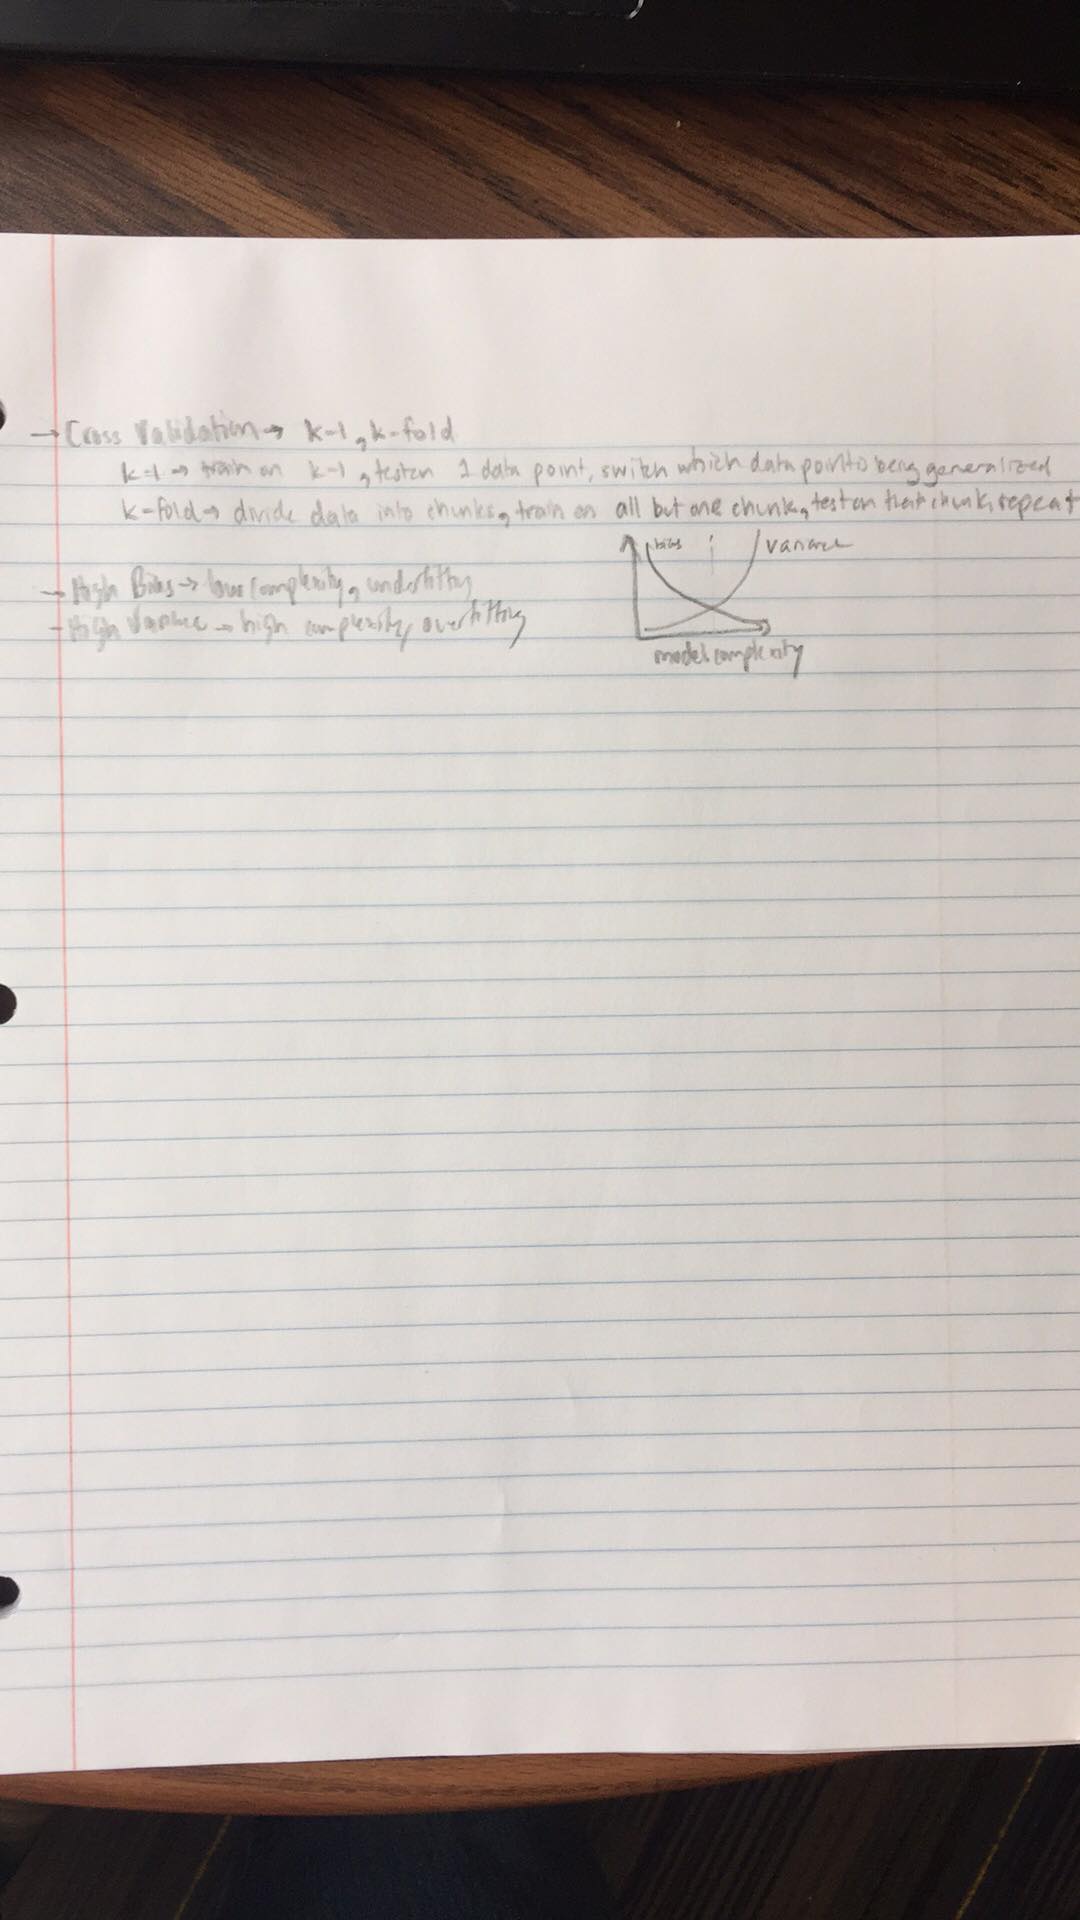 → Cross Validation → k-1, k-fold
k-1 → train on k-1, test on 1 data point, switch which data point is being generalized
k-fold → divide data into chunks, train on all but one chunk, test on that chunk, repeat
bias variance
→ High Bias → low complexity, underfitting
→ High Variance → high complexity, overfitting
model complexity